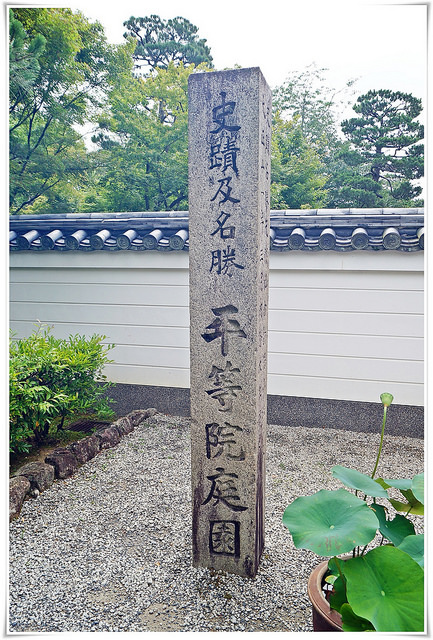 史蹟及名勝 平等院庭園